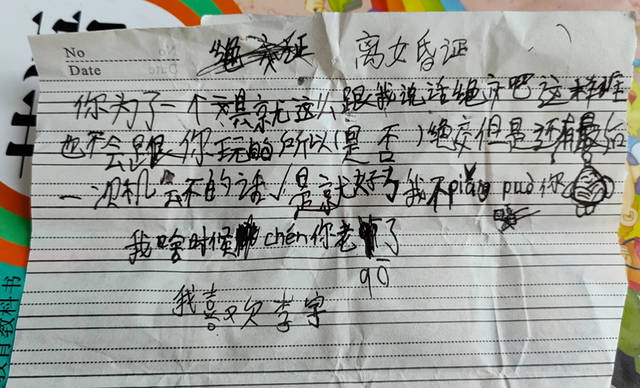 No
Date
绝交证 离婚证
你为了一个文具就这么跟我说话绝交吧这样谁
也不会跟你玩的所以(是 否)绝交但是还有最后
一次机会不的话√是就好了我不piàng pud你
我啥时候chén你老了
qō
我喜欢李字
教育教科书